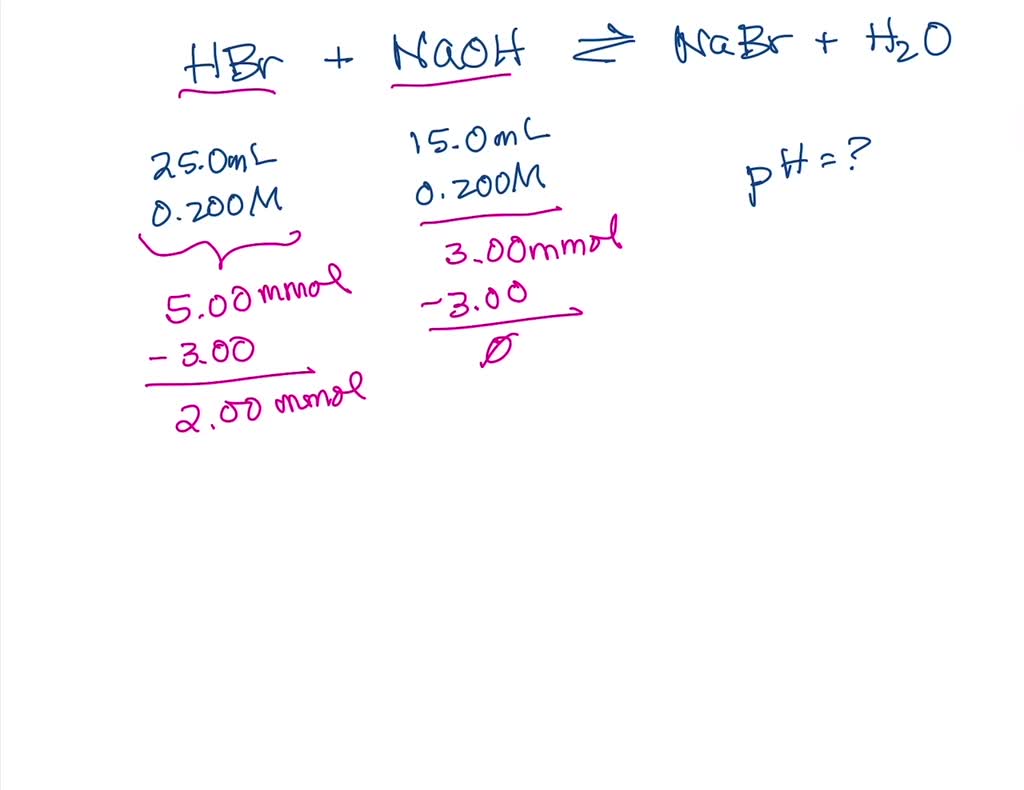 HBr + NaOH ⇌ NaBr + H₂O
25.0mL
0.200M
15.0mL
0.200M
pH=?
5.00mmol
- 3.00
2.00 mmol
3.00mmol
-3.00
0